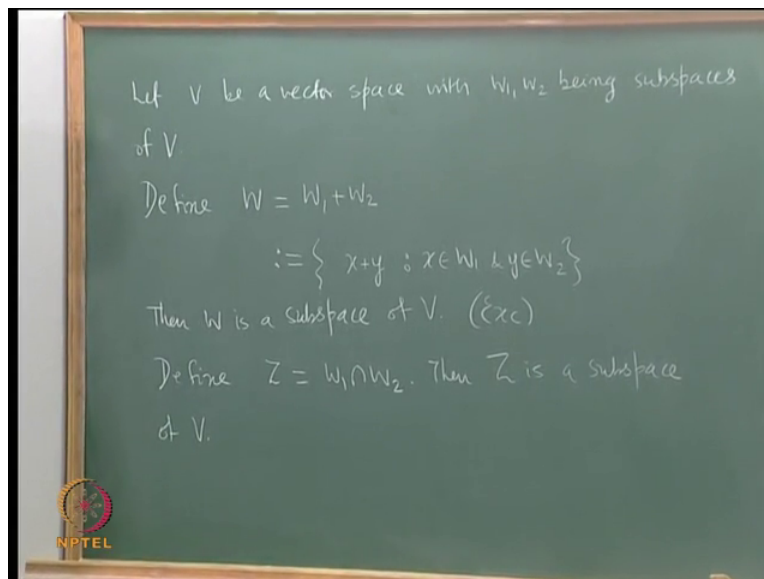 Let V be a vector space with W₁, W₂ being subspaces
of V.
Define W = W₁ + W₂
:= { x+y : x ∈ W₁ & y ∈ W₂ }
Then W is a subspace of V. (Exc)
Define Z = W₁ ∩ W₂. Then Z is a subspace
of V.
NPTEL